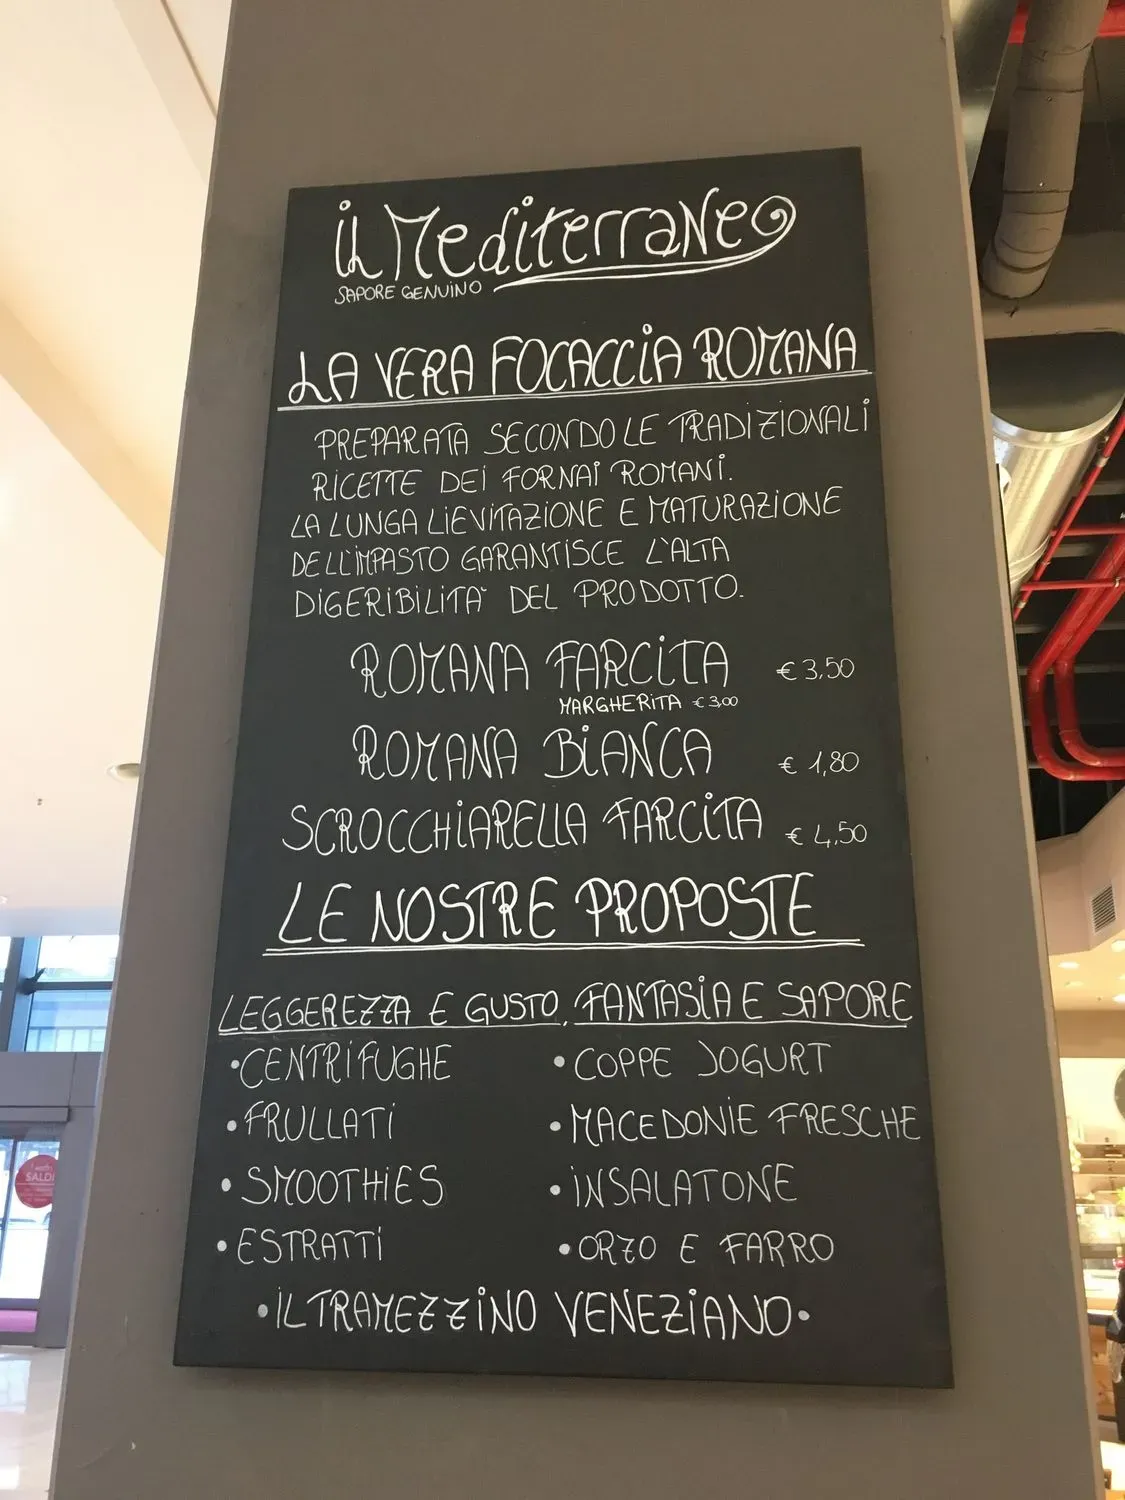 il Mediterraneo
SAPORE GENUINO
LA VERA FOCACCIA ROMANA
PREPARATA SECONDO LE TRADIZIONALI
RICETTE DEI FORNAI ROMANI.
LA LUNGA LIEVITAZIONE E MATURAZIONE
DELL'IMPASTO GARANTISCE L'ALTA
DIGERIBILITA' DEL PRODOTTO.
ROMANA FARCITA € 3,50
MARGHERITA € 3,00
ROMANA BIANCA € 1,80
SCROCCHIARELLA FARCITA € 4,50
LE NOSTRE PROPOSTE
LEGGEREZZA E GUSTO, FANTASIA E SAPORE
• CENTRIFUGHE • COPPE JOGURT
• FRULLATI • MACEDONIE FRESCHE
• SMOOTHIES • INSALATONE
• ESTRATTI • ORZO E FARRO
• IL TRAMEZZINO VENEZIANO •
SALDI